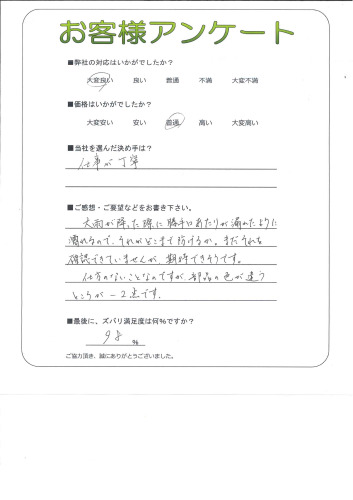 お客様アンケート
■弊社の対応はいかがでしたか？
大変良い 良い 普通 不満 大変不満
■価格はいかがでしたか？
大変安い 安い 普通 高い 大変高い
■当社を選んだ決め手は？
仕事が丁寧
■ご感想・ご要望などをお書き下さい。
大雨が降った際に勝手口あたりが漏れたように
濡れるので、それがどこまで防げるか。まだそれを
確認できていませんが、期待できそうです。
仕方のないことなのですが、部品の色が違う
ところが一2点です。
■最後に、ズバリ満足度は何％ですか？
98 ％
ご協力頂き、誠にありがとうございました。